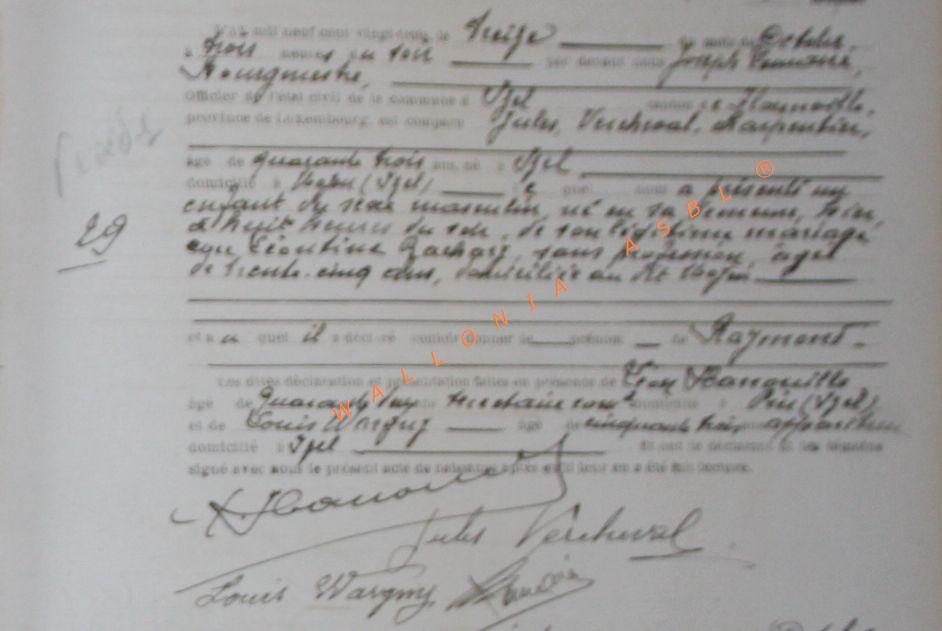 L'an mil neuf cent vingt-trois le Treize du mois de Octobre,
à trois heures du soir par devant nous Joseph
Bourgmestre,
Officier de l'état civil de la commune d' Izel canton de Florenville,
province de Luxembourg, est comparu Jules, Vercheval, charpentier,
âgé de quarante trois ans, né à Izel
domicilié à (Izel) lequel nous a présenté un
29
enfant du sexe masculin, né en sa demeure, hier,
à huit heures du soir, de son légitime mariage
avec Léontine Zachary, sans profession, âgée
de trente-cinq ans, domiciliée au dit
et auquel il a déclaré vouloir donner le prénom de Raymond
Les dites déclaration et présentation faites en présence de Léon Hanouille
âgé de ans secrétaire domicilié à Pin (Izel)
et de Louis Wargny âgé de cinquante trois
domicilié à Izel Et ont le déclarant et les témoins
signé avec nous le présent acte de naissance après qu'il leur en a été fait lecture.
Jules Vercheval
Louis Wargny
WALLONIA ASBL ®